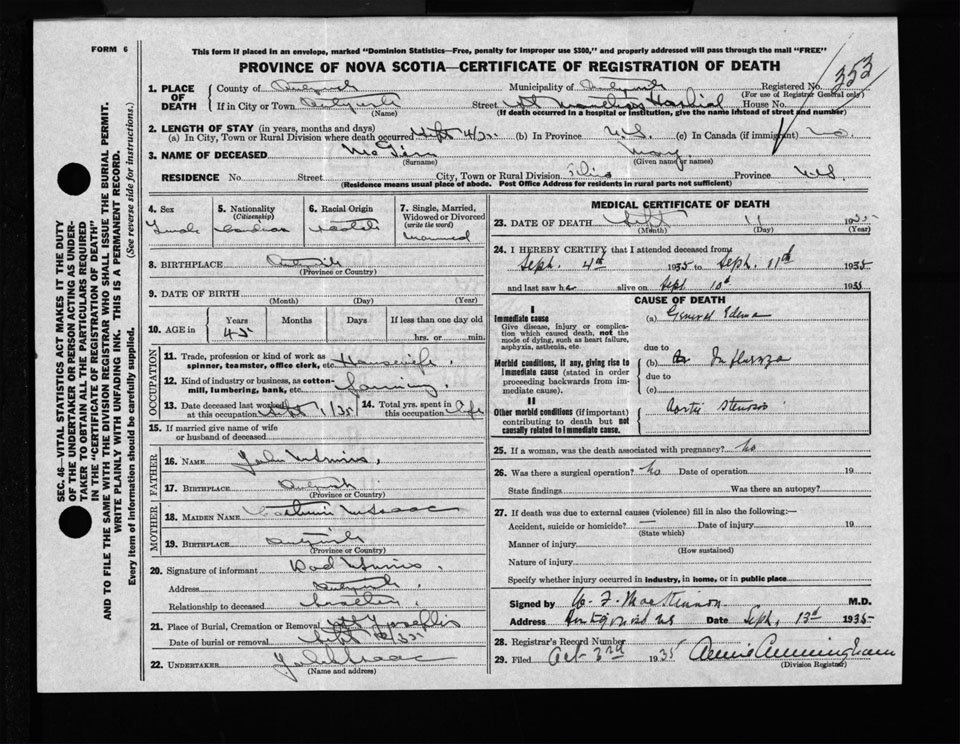 FORM 6
This form if placed in an envelope, marked "Dominion Statistics—Free, penalty for improper use $300," and properly addressed will pass through the mail "FREE"
PROVINCE OF NOVA SCOTIA—CERTIFICATE OF REGISTRATION OF DEATH
353
1. PLACE OF DEATH
County of
Municipality of
Registered No.
(For use of Registrar General only)
If in City or Town
(Name)
Street
House No.
(If death occurred in a hospital or institution, give the name instead of street and number)
2. LENGTH OF STAY (in years, months and days)
(a) In City, Town or Rural Division where death occurred (b) In Province N.S. (c) In Canada (if immigrant) no
3. NAME OF DECEASED May
(Surname) (Given name or names)
RESIDENCE No. Street City, Town or Rural Division Province N.S.
(Residence means usual place of abode. Post Office Address for residents in rural parts not sufficient)
SEC. 46—VITAL STATISTICS ACT MAKES IT THE DUTY
OF THE UNDERTAKER OR PERSON ACTING AS UNDER-
TAKER TO OBTAIN ALL THE PARTICULARS REQUIRED
IN THE "CERTIFICATE OF REGISTRATION OF DEATH"
AND TO FILE THE SAME WITH THE DIVISION REGISTRAR WHO SHALL ISSUE THE BURIAL PERMIT.
WRITE PLAINLY WITH UNFADING INK. THIS IS A PERMANENT RECORD.
Every item of information should be carefully supplied. (See reverse side for instructions.)
4. Sex
Female
5. Nationality
(Citizenship)
Canadian
6. Racial Origin
7. Single, Married,
Widowed or Divorced
(write the word)
Married
8. BIRTHPLACE
(Province or Country)
9. DATE OF BIRTH
(Month) (Day) (Year)
10. AGE in
Years Months Days If less than one day old
45 hrs. or min.
OCCUPATION
11. Trade, profession or kind of work as
spinner, teamster, office clerk, etc. Housewife
12. Kind of industry or business, as cotton-
mill, lumbering, bank, etc. farming
13. Date deceased last worked
at this occupation Sept 1/35
14. Total yrs. spent in
this occupation Life
15. If married give name of wife
or husband of deceased
FATHER
16. NAME John
17. BIRTHPLACE
(Province or Country)
MOTHER
18. MAIDEN NAME
19. BIRTHPLACE
(Province or Country)
20. Signature of informant
Address
Relationship to deceased
21. Place of Burial, Cremation or Removal
Date of burial or removal
22. UNDERTAKER
(Name and address)
MEDICAL CERTIFICATE OF DEATH
23. DATE OF DEATH Sept 11 1935
(Month) (Day) (Year)
24. I HEREBY CERTIFY that I attended deceased from
Sept. 4th 1935 to Sept. 11th 1935
and last saw her alive on Sept 10th 1935
CAUSE OF DEATH
I
Immediate cause
Give disease, injury or complica-
tion which caused death, not the
mode of dying, such as heart failure,
asphyxia, asthenia, etc.
(a) General Edema
due to
Morbid conditions, if any, giving rise to
immediate cause (stated in order
proceeding backwards from im-
mediate cause).
(b) Influenza
due to
(c)
II
Other morbid conditions (if important)
contributing to death but not
causally related to immediate cause.
Aortic Stenosis
25. If a woman, was the death associated with pregnancy? No
26. Was there a surgical operation? No Date of operation 19
State findings Was there an autopsy?
27. If death was due to external causes (violence) fill in also the following:—
Accident, suicide or homicide? — Date of injury 19
(State which)
Manner of injury
(How sustained)
Nature of injury
Specify whether injury occurred in industry, in home, or in public place
Signed by MacKinnon M.D.
Address Antigonish NS Date Sept. 13th 1935
28. Registrar's Record Number
29. Filed Oct 3rd 1935 Annie Cunningham
(Division Registrar)